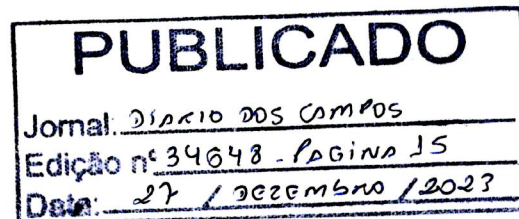 PUBLICADO
Jornal: DIARIO DOS CAMPOS
Edição nº 34648 - PAGINA 15
Data: 27 / DEZEMBRO / 2023